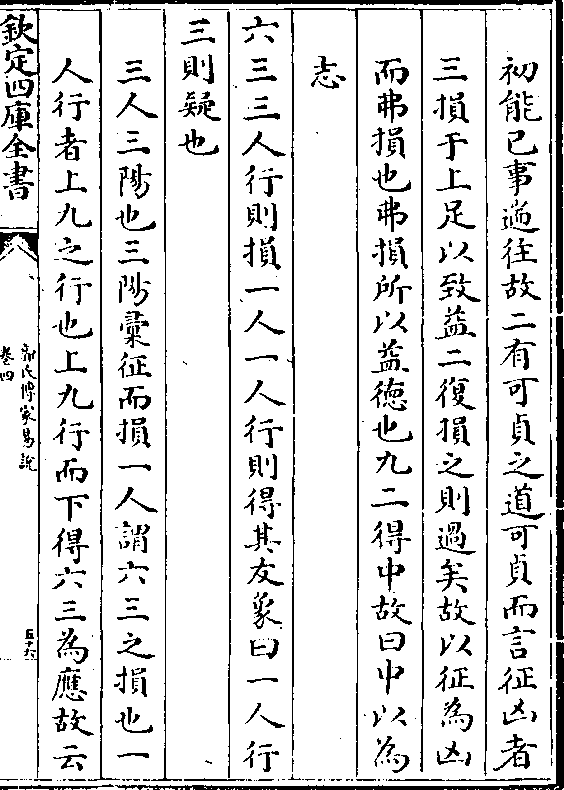 初能已事遄往故二有可貞之道可貞而言征凶者
三損于上足以致益二復損之則過矣故以征為凶
而弗損也弗損所以益徳也九二得中故曰中以為
志
六三三人行則損一人一人行則得其友象曰一人行
三則疑也
三人三陽也三陽彙征而損一人謂六三之損也一
人行者上九之行也上九行而下得六三為應故云
欽定四庫全書
郭氏傳家易說
卷四
五十六